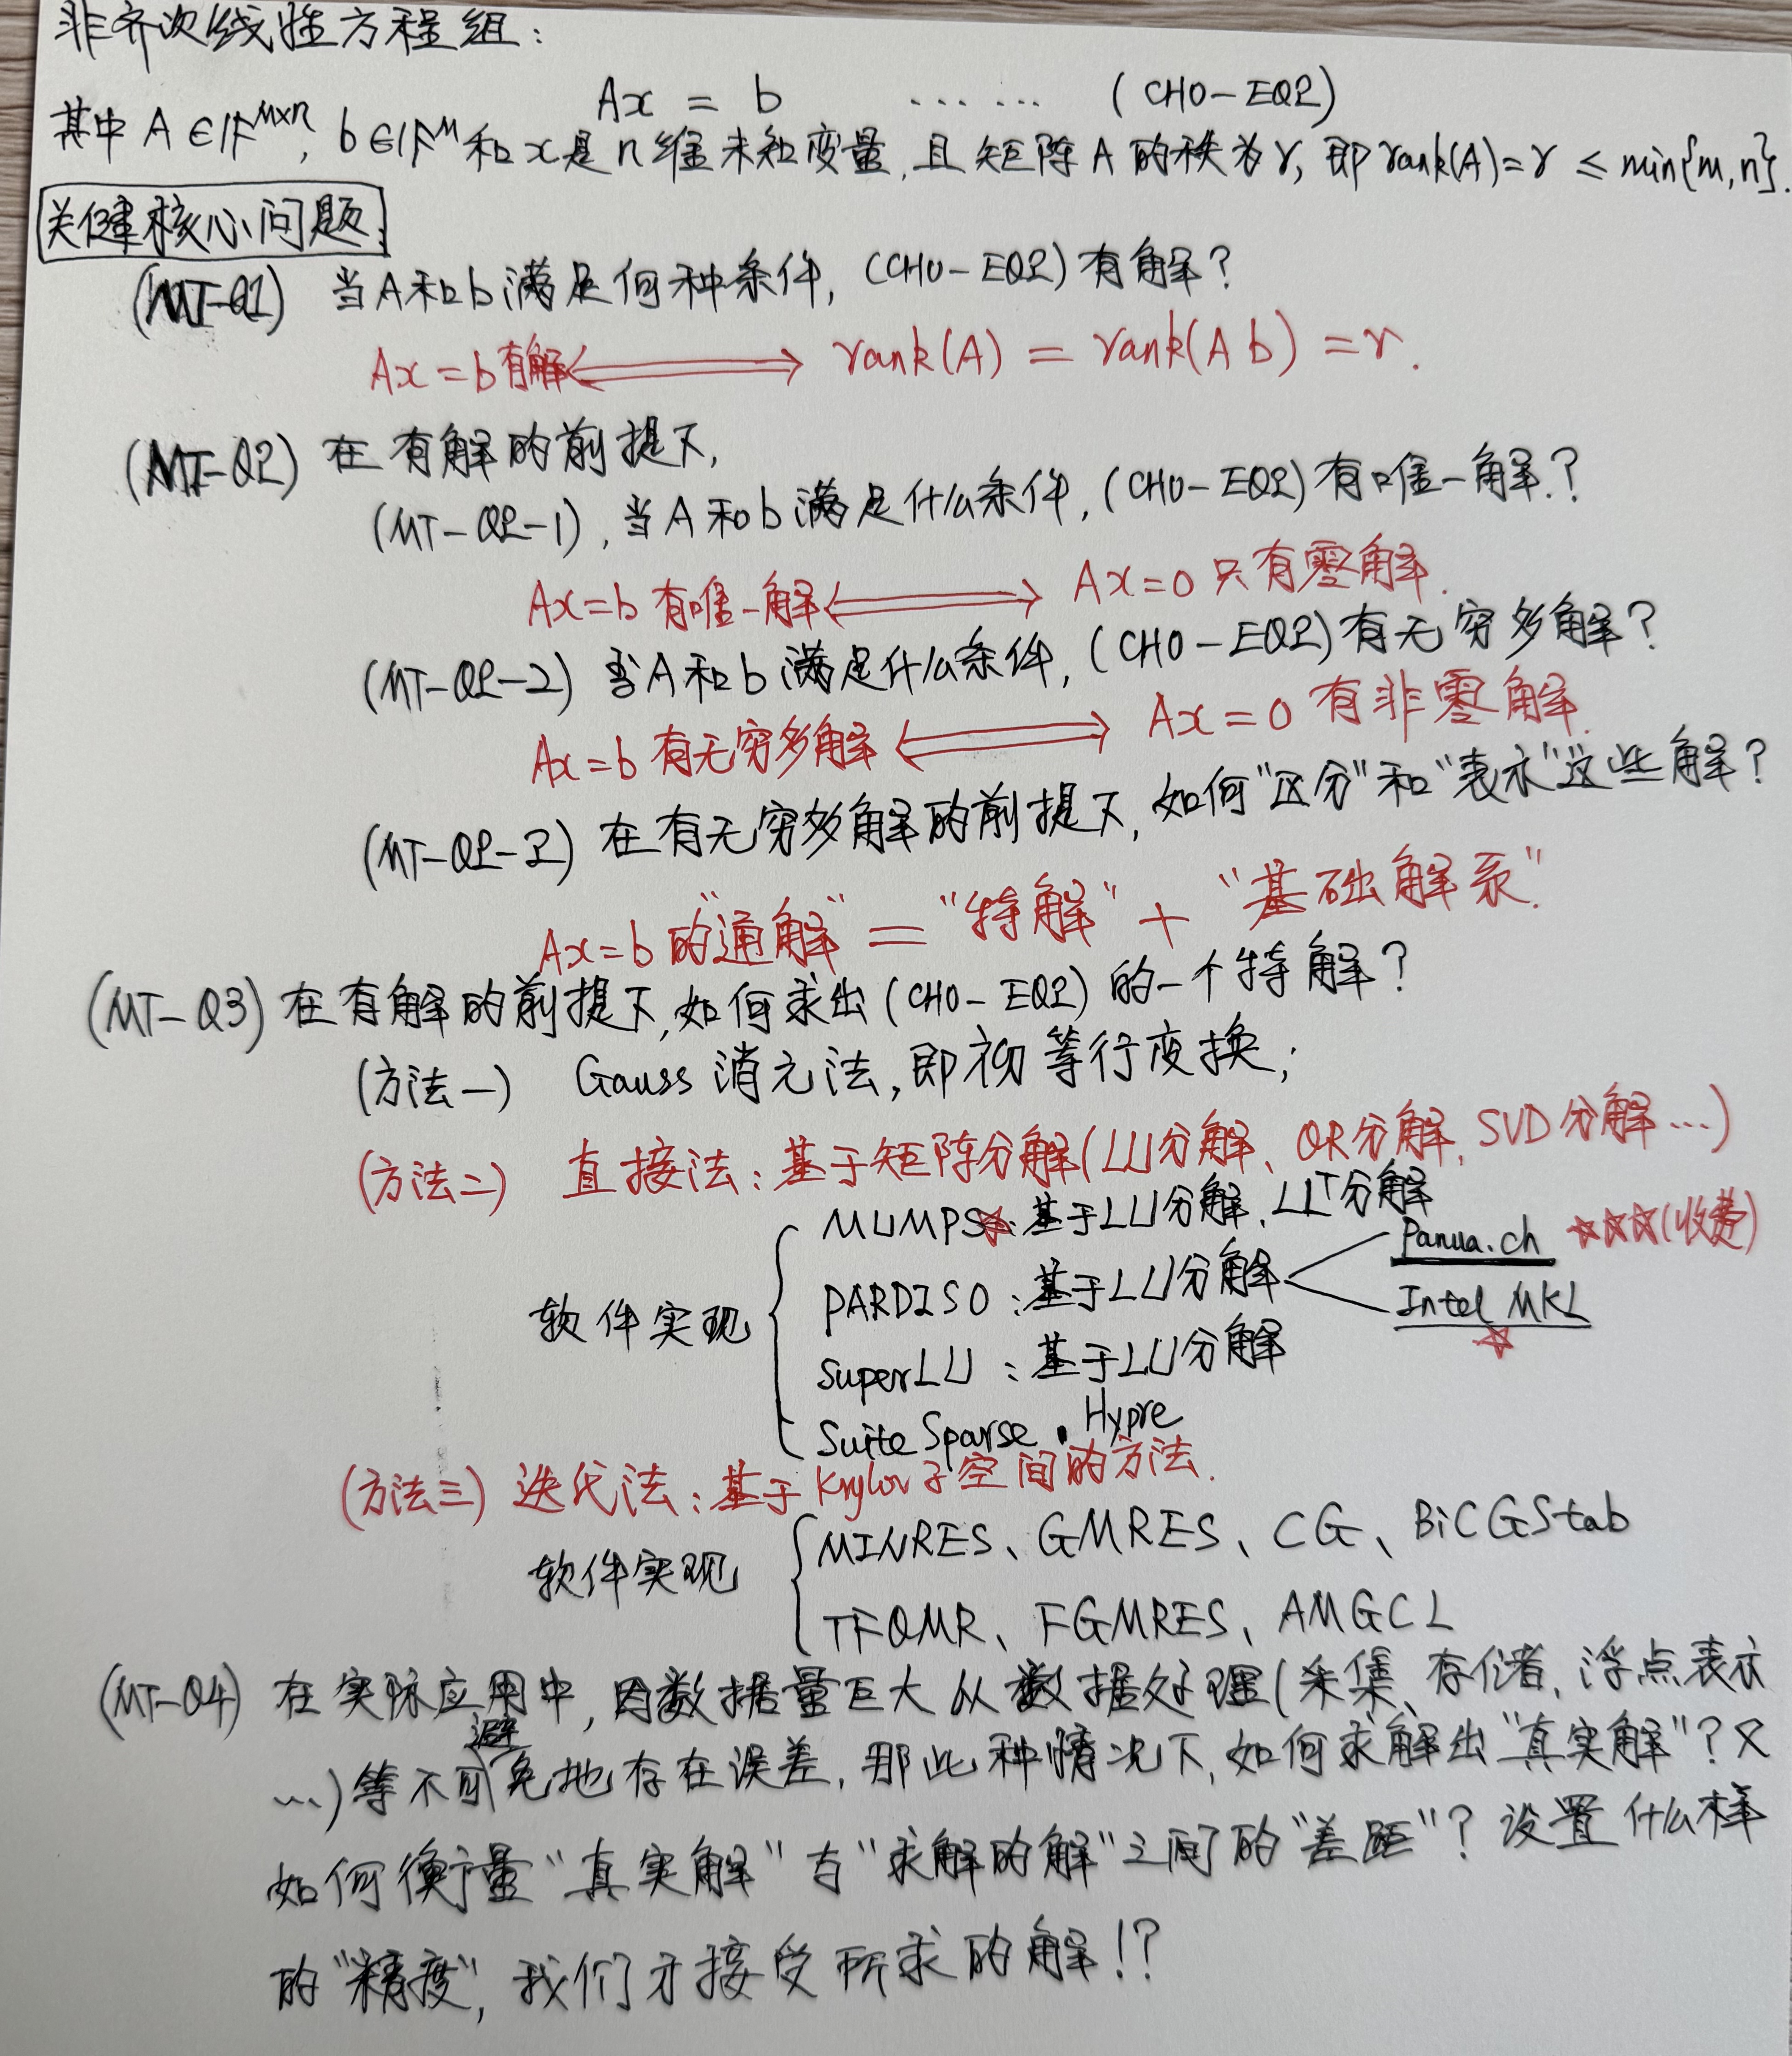 非齐次线性方程组:
Ax = b ...... (CH0-EQ2)
其中 A∈F^{m×n}, b∈F^m 和 x 是 n 维未知变量, 且矩阵 A 的秩为 r, 即 rank(A)=r ≤ min{m,n}.
关键核心问题:
(MT-Q1) 当A和b满足何种条件, (CH0-EQ2)有解?
Ax=b有解 ⟺ rank(A) = rank(A b) = r.
(MT-Q2) 在有解的前提下,
(MT-Q2-1), 当A和b满足什么条件, (CH0-EQ2)有唯一解?
Ax=b 有唯一解 ⟺ Ax=0 只有零解.
(MT-Q2-2) 当A和b满足什么条件, (CH0-EQ2)有无穷多解?
Ax=b 有无穷多解 ⟺ Ax=0 有非零解.
(MT-Q2-2) 在有无穷多解的前提下, 如何"区分"和"表示"这些解?
Ax=b 的"通解" = "特解" + "基础解系".
(MT-Q3) 在有解的前提下, 如何求出(CH0-EQ2)的一个特解?
(方法一) Gauss 消元法, 即初等行变换;
(方法二) 直接法: 基于矩阵分解(LU分解、QR分解、SVD分解...)
MUMPS☆: 基于LU分解、LL^T分解
Panua.ch ☆☆☆(收费)
PARDISO: 基于LU分解
Intel MKL
☆
软件实现
SuperLU: 基于LU分解
SuiteSparse. Hypre
(方法三) 迭代法: 基于Krylov子空间的方法.
MINRES、GMRES、CG、BiCGStab
软件实现
TFQMR、FGMRES、AMGCL
(MT-Q4) 在实际应用中, 因数据量巨大从数据处理(采集、存储、浮点表示
...)等不可避免地存在误差, 那此种情况下, 如何求解出"真实解"? 又
如何衡量"真实解"与"求解的解"之间的"差距"? 设置什么样
的"精度", 我们才接受所求的解!?